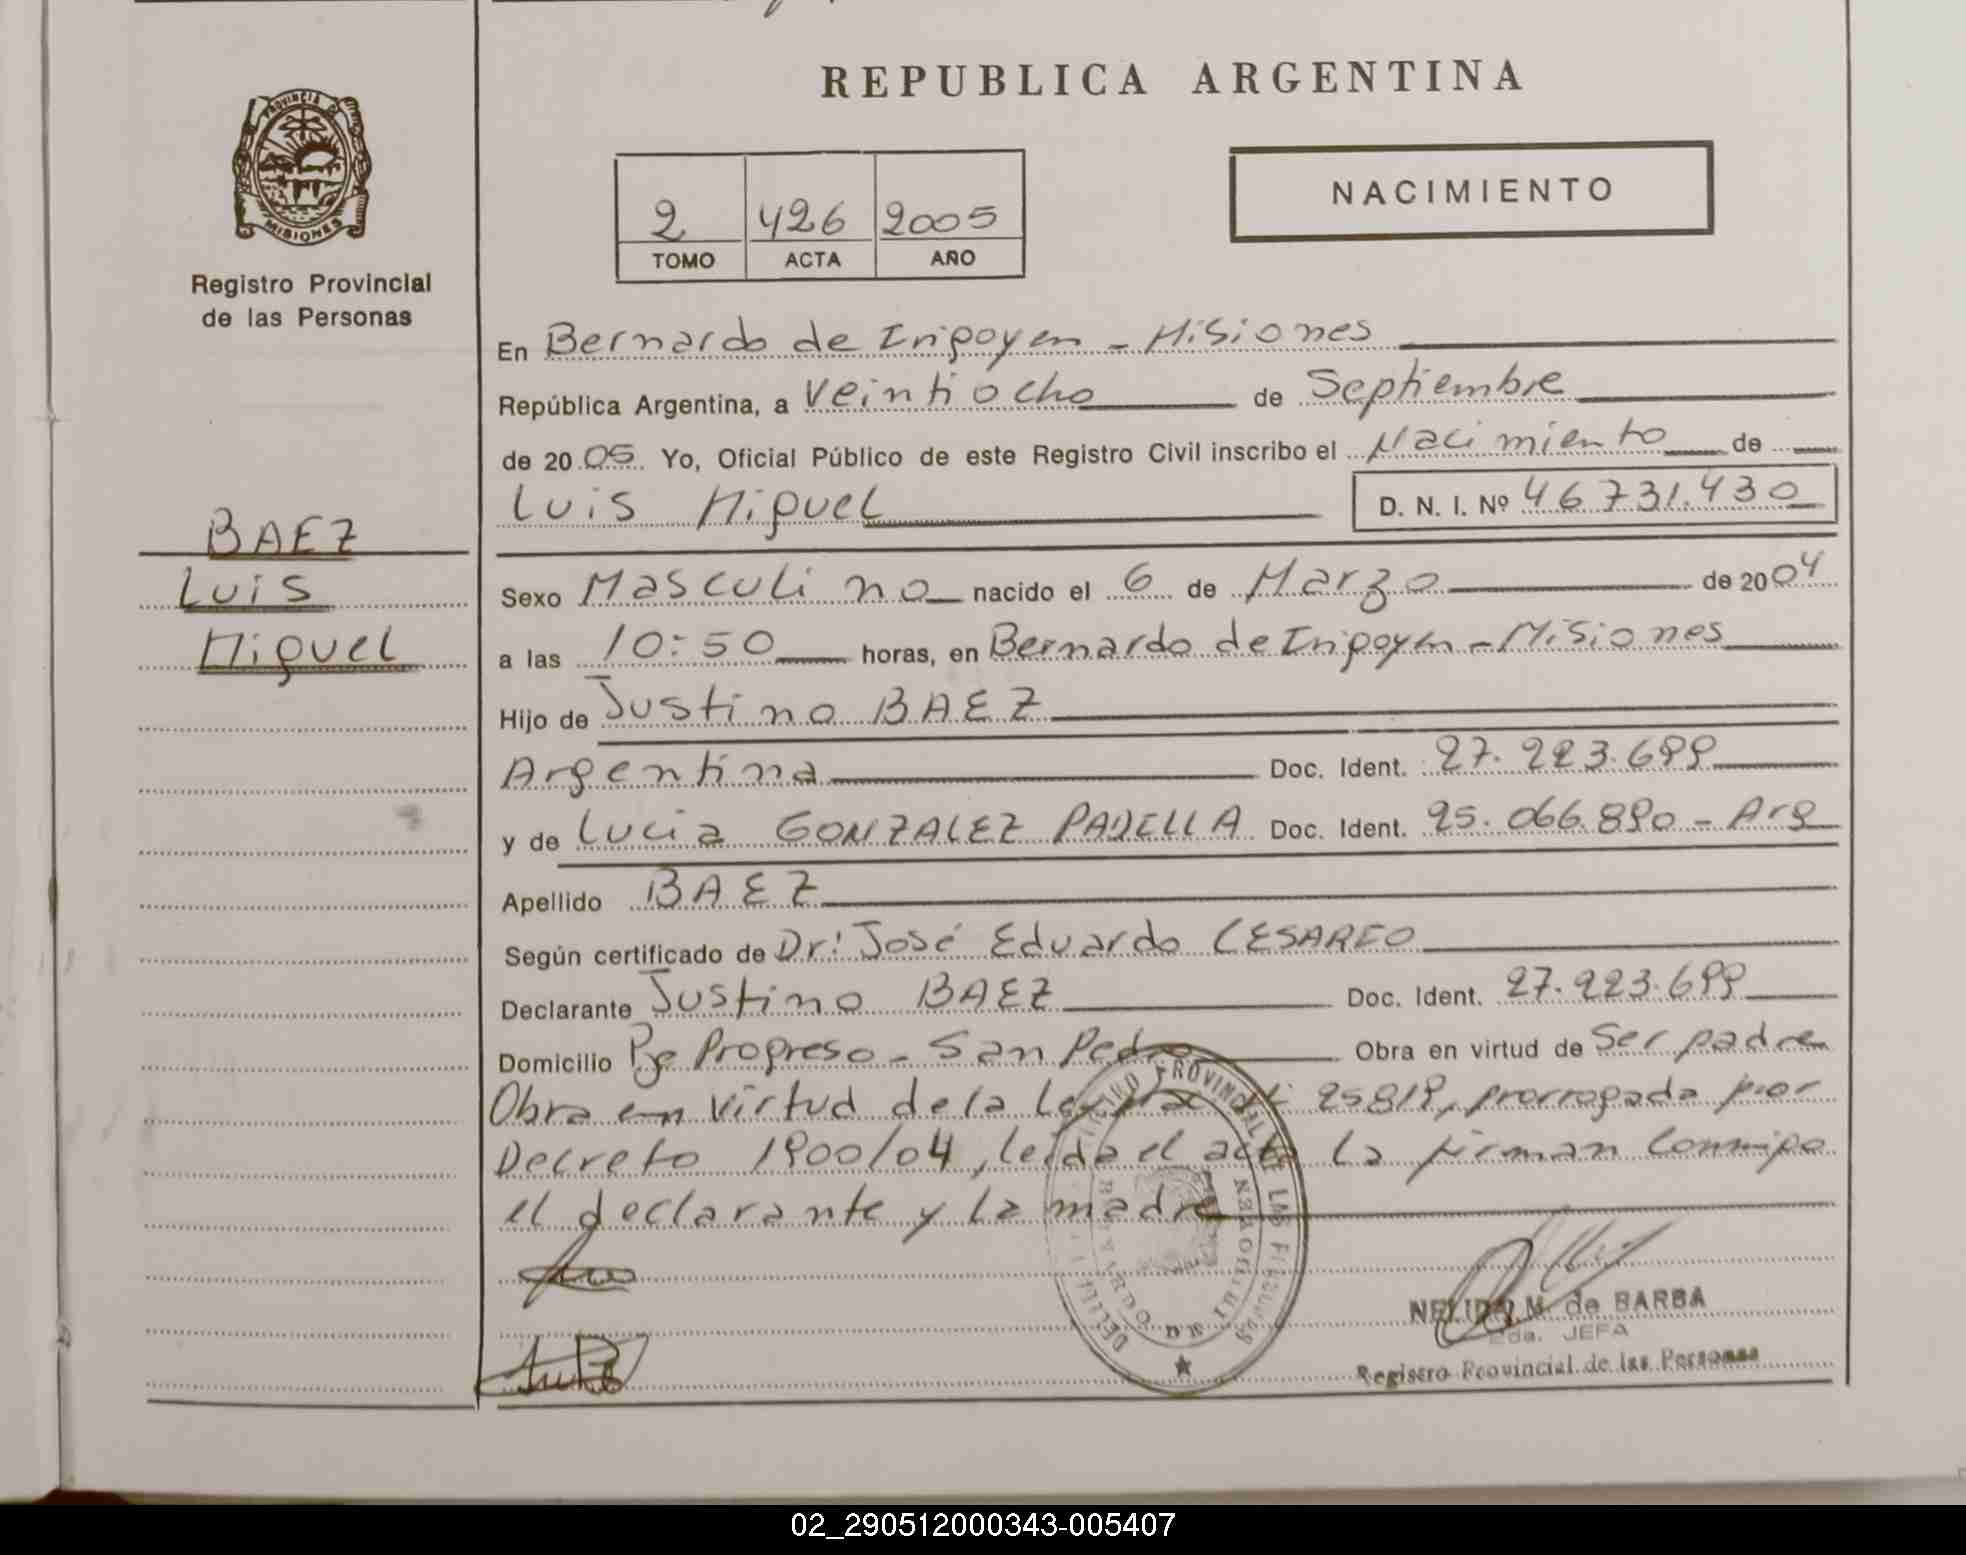 REPUBLICA ARGENTINA
PROVINCIA DE
MISIONES
Registro Provincial
de las Personas
2 426 2005
TOMO ACTA AÑO
NACIMIENTO
En Bernardo de Irigoyen - Misiones
República Argentina, a Veintiocho de Septiembre
de 2005. Yo, Oficial Público de este Registro Civil inscribo el Nacimiento de
Luis Miguel D. N. I. Nº 46.731.430
BAEZ
Luis
Miguel
Sexo Masculino nacido el 6 de Marzo de 2004
a las 10:50 horas, en Bernardo de Irigoyen - Misiones
Hijo de Justino BAEZ
Argentina Doc. Ident. 27.223.699
y de Lucia GONZALEZ PADELLA Doc. Ident. 95.066.890 - Arg
Apellido BAEZ
Según certificado de Dr: José Eduardo CESAREO
Declarante Justino BAEZ Doc. Ident. 27.223.699
Domicilio Pje Progreso - San Pedro Obra en virtud de Ser padre
Obra en virtud de la Ley 25819, prorrogada por
Decreto 1900/04, leída el acta la firman conmigo
el declarante y la madre
NELIDA M. de BARBA
2da. JEFA
Registro Provincial de las Personas
02_290512000343-005407